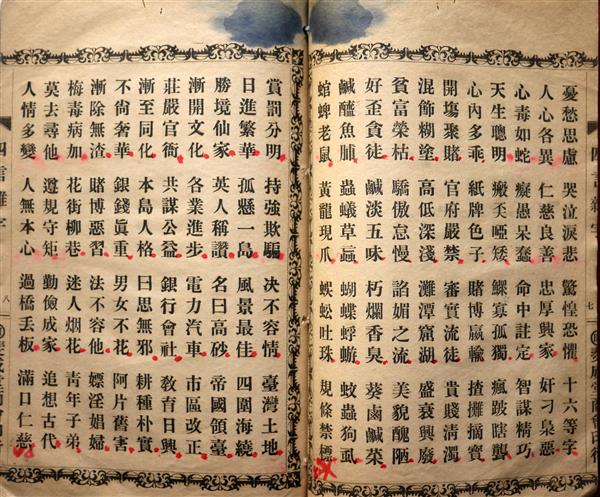 四言雜字
七
憂愁思慮 哭泣淚悲 驚惶恐懼 十六等字
人心各異 仁慈良善 忠厚興家 奸刁梟惡
心毒如蛇 癡愚呆蠢 命中註定 智謀精巧
天生聰明 矮 鰥寡孤獨 瘋跛瞎聾
心內多乖 紙牌色子 賭博嬴輸 揸攤摘寶
開塲聚賭 官府嚴禁 審實流徒 貴賤清濁
混飾糊塗 高低深淺 灘潭窟湖 盛衰興廢
貧富榮枯 驕傲怠慢 諂媚之流 美貌醜陋
好歪貪徒 鹹淡五味 朽爛香臭 葵鹵鹹菜
鹹醢魚脯 蟲蟻草蝱 蝴蝶蜉蝣 蚊蟲狗虱
蜱老鼠 黃龍現爪 蜈蚣吐珠 規條禁標
賞罰分明 持強欺騙 決不容情 臺灣土地
日進繁華 孤懸一島 風景最佳 四圍海繞
勝境仙家 英人稱讚 名曰高砂 帝國領臺
漸開文化 各業進步 電力汽車 市區改正
莊嚴官衙 共謀公益 銀行會社 敎育日興
漸至同化 本島人格 曰思無邪 耕種朴實
不尚奢華 銀錢眞重 男女不花 阿片舊害
漸除無渣 賭博惡習 法不容他 嫖淫娼婦
梅毒病加 花街柳巷 迷人烟花 青年子弟
莫去尋他 遵規守矩 勤儉成家 追想古代
人情多變 人無本心 過橋丟板 滿口仁慈
四言雜字
八